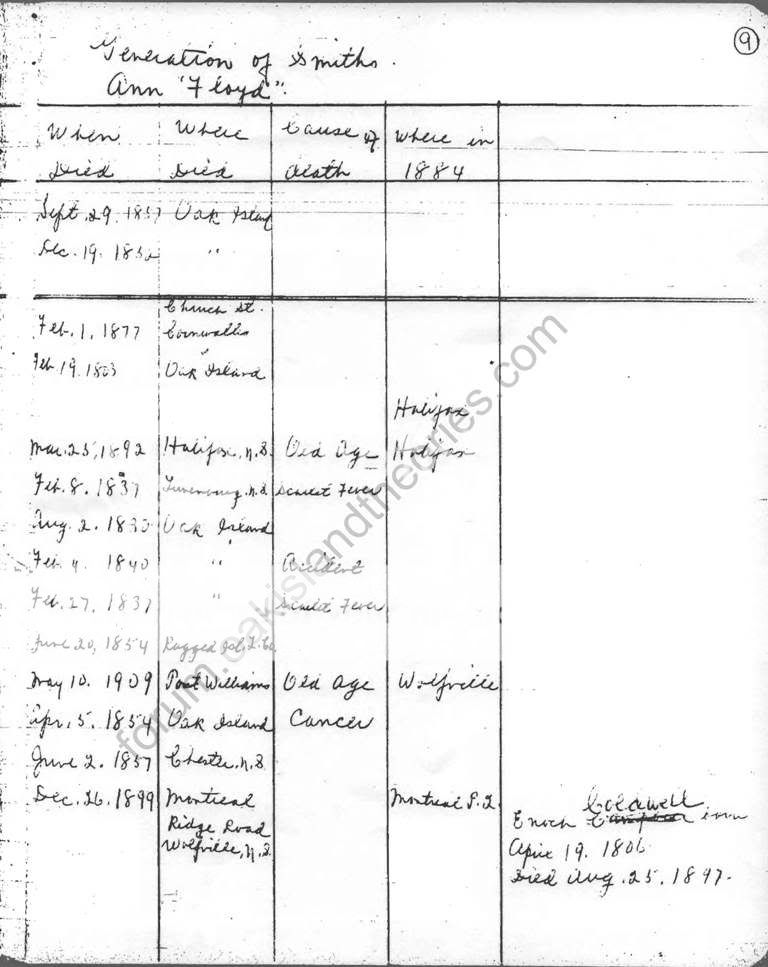 9
Generation of Smiths.
Ann "Floyd".
When Where Cause of Where in
Died Died death 1884
Sept. 29. 1857 Oak Island
Dec. 19. 1852 "
Church St.
Feb. 1. 1877 Cornwallis
Feb. 19. 1803 Oak Island
Halifax
Mar. 25, 1892 Halifax, N.S. Old Age Halifax
Feb. 8. 1837 Lunenburg, N.S. Scarlet Fever
Aug. 2. 1830 Oak Island
Feb. 4. 1840 " Accident
Feb. 27, 1837 " Scarlet Fever
June 20, 1854 Ragged Isl.
May 10. 1909 Port Williams Old Age Wolfville
Apr. 5. 1854 Oak Island Cancer
June 2. 1857 Chester, N.S.
Dec. 26. 1899 Montreal Montreal P.Q.
Ridge Road
Wolfville, N.S.
Coldwell
Enoch born
April 19. 1806
Died Aug. 25. 1897.
forum.oakislandtheories.com